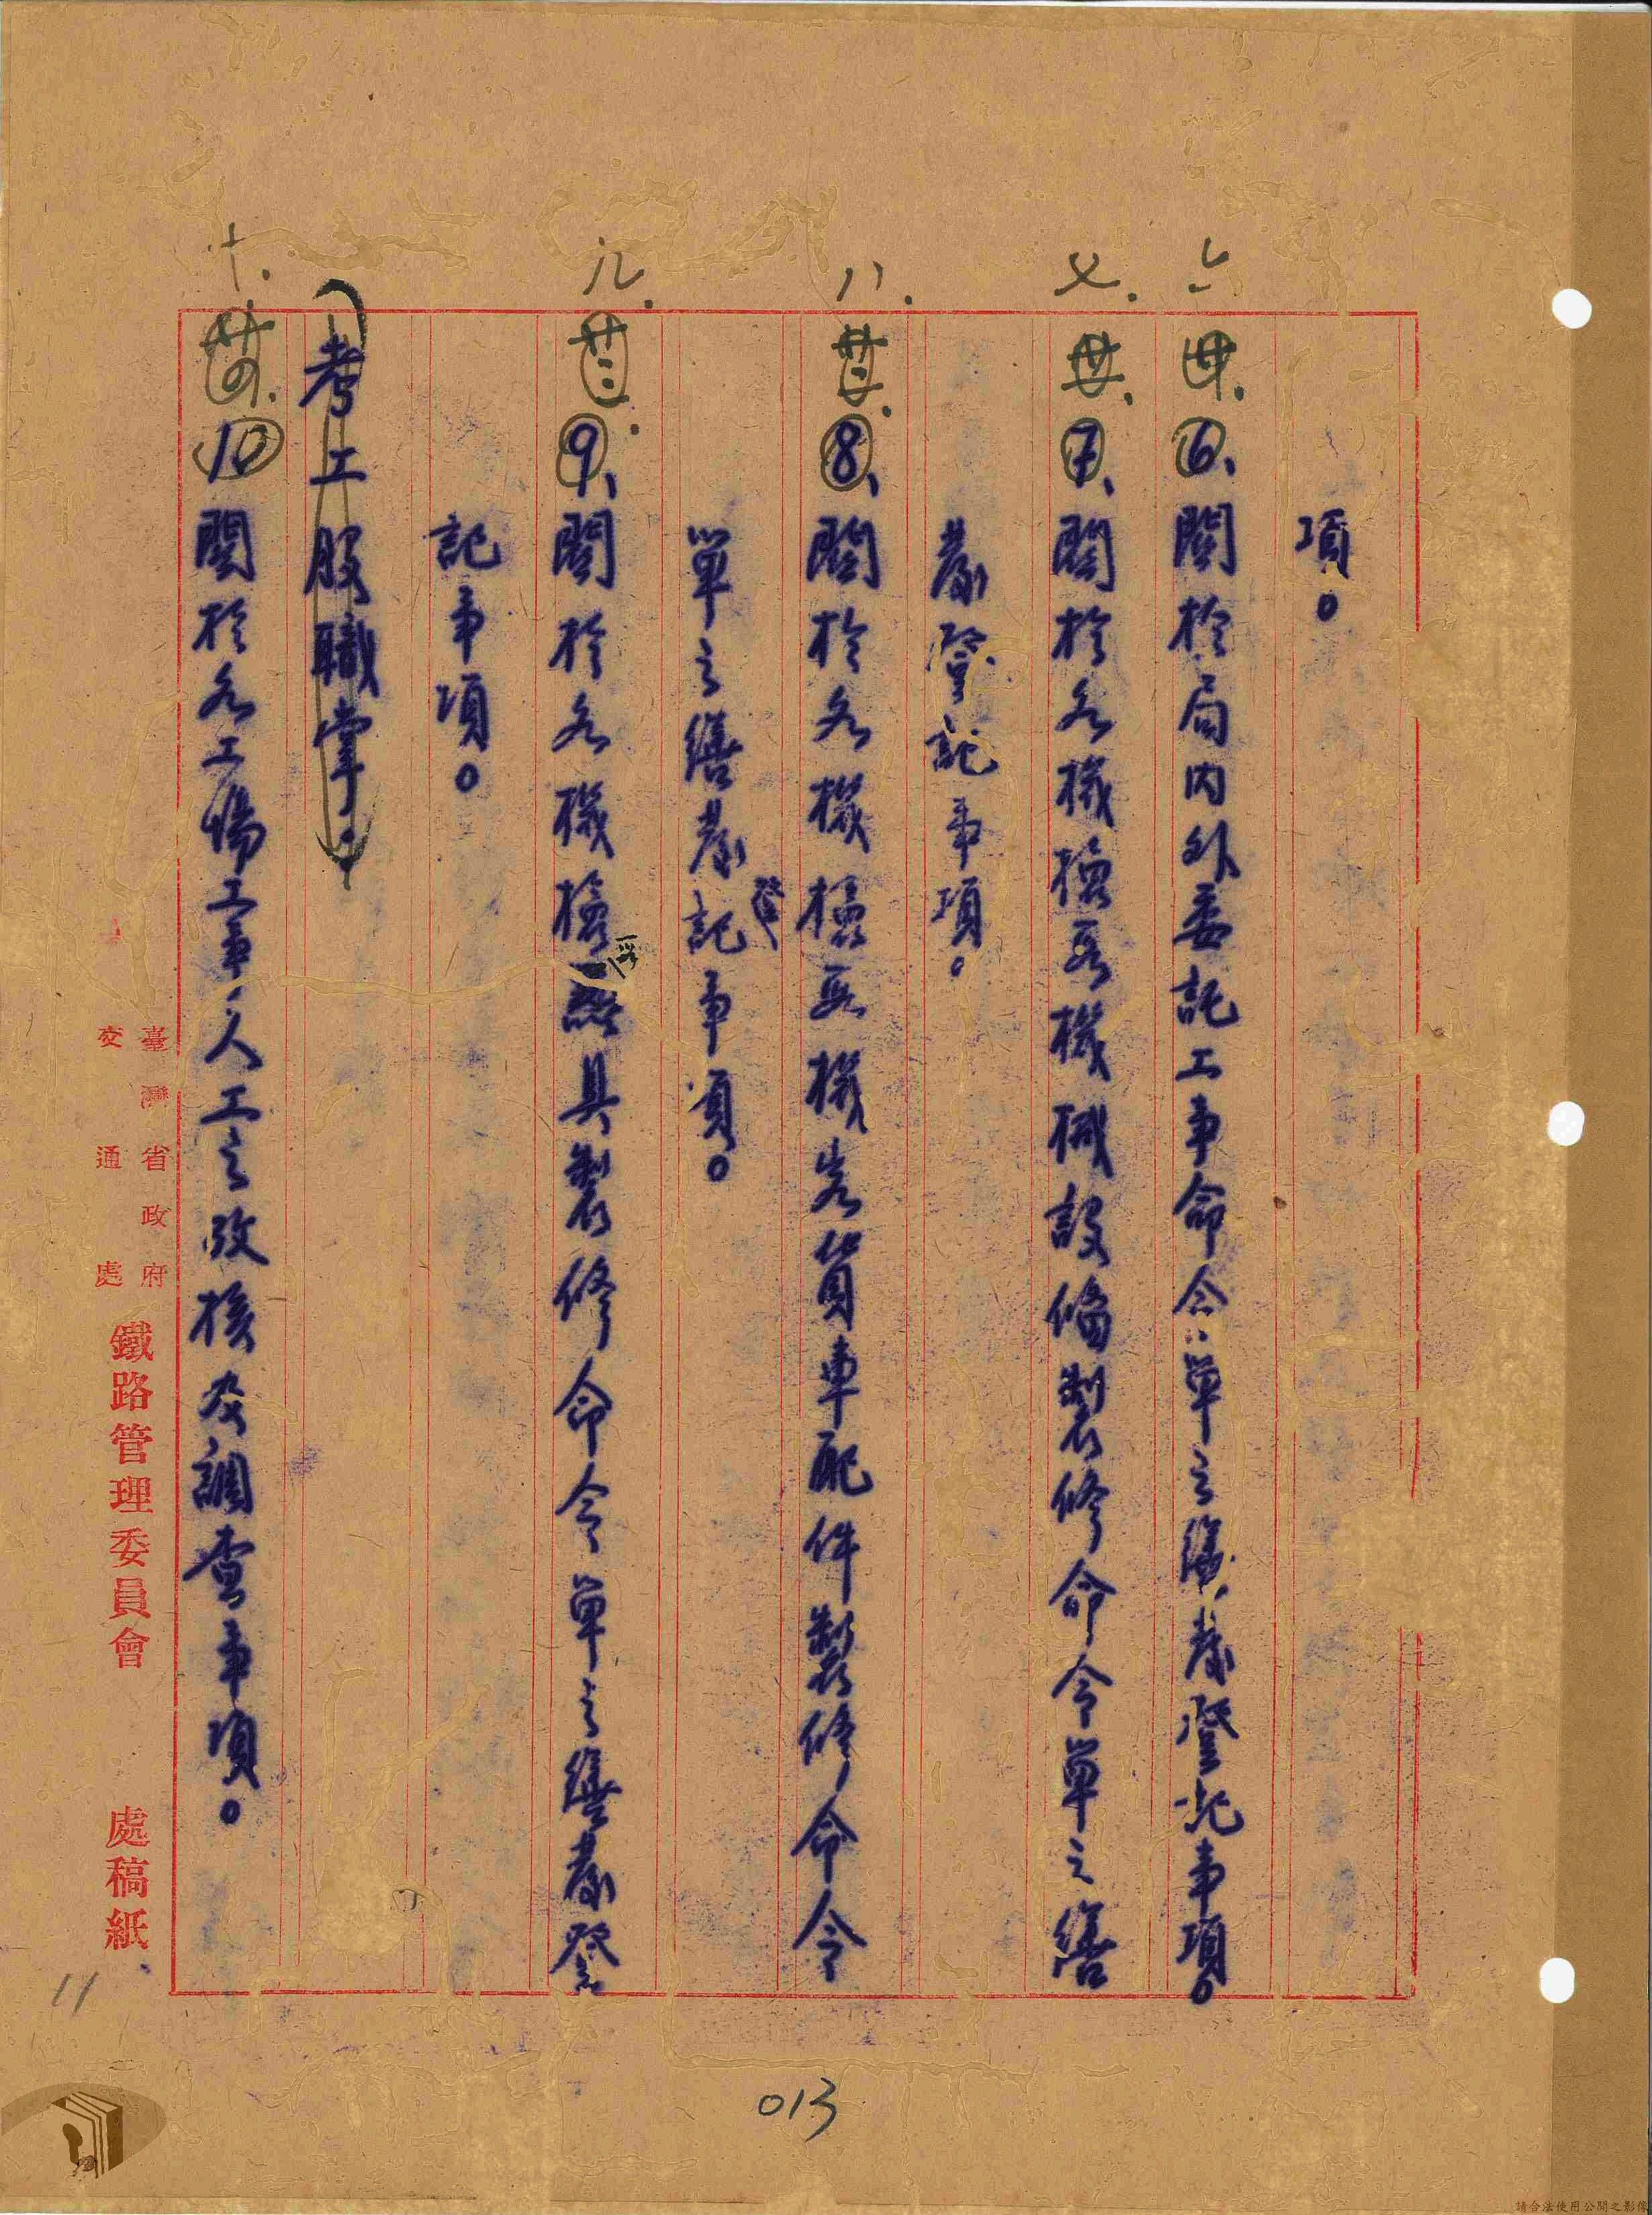 項。
六
廿.
⑥、關於局内外委託工事命令單之繕發登記事項。
七.
廿一.
⑦、關於各機檢區機械設備製修命令單之繕
發登記事項。
八.
廿二.
⑧、關於各機檢區機客貨車配件製修命令
單之繕發登記事項。
九.
廿三.
⑨、關於各機檢區器具製修命令單之繕發登
記事項。
考工股職掌。
十.
廿四.
⑩關於各工場工事人工之改核及調查事項。
臺灣省政府
交通處
鐵路管理委員會 處稿紙
11
013
請合法使用公開之影像